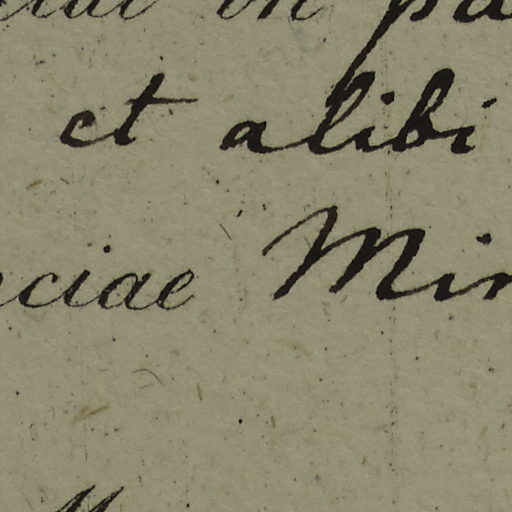 in pa
et alibi
nciae Min